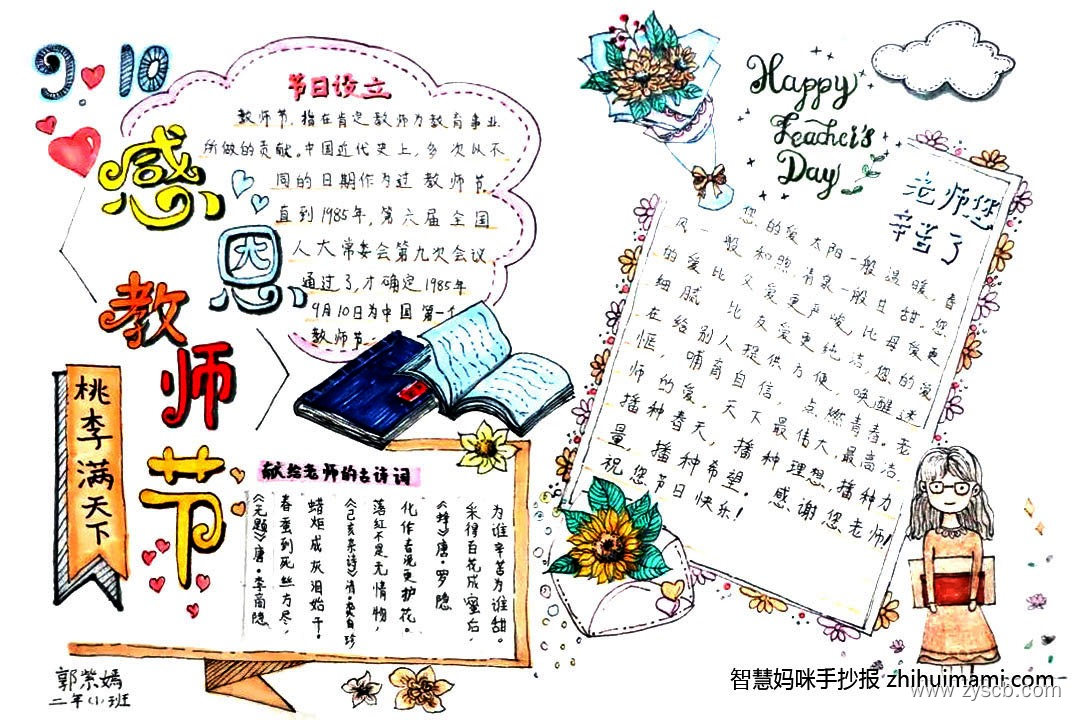 9.10
感恩
教师节
桃李满天下
节日设立
教师节,指在肯定教师为教育事业
所做的贡献。中国近代史上,多次以不
同的日期作为过教师节
直到1985年,第六届全国
人大常委会第九次会议
通过了,才确定1985年
9月10日为中国第一个
教师节
献给老师的古诗词
《无题》唐·李商隐
春蚕到死丝方尽,
蜡炬成灰泪始干。
《己亥杂诗》清·龚自珍
落红不是无情物,
化作春泥更护花。
《蜂》唐·罗隐
采得百花成蜜后,
为谁辛苦为谁甜。
郭崇嫣
二年(1)班
Happy
Teacher's
Day
老师您
辛苦了
您的爱太阳一般温暖,春
风一般和煦,清泉一般甘甜。您
的爱比父爱更严峻,比母爱更
细腻,比友爱更纯洁。您的爱
在给别人提供方便,唤醒迷
惘,哺育自信,点燃青春。老
师的爱,天下最伟大,最高洁。
播种春天,播种理想,播种力
量,播种希望。感谢您老师!
祝您节日快乐!
智慧妈咪手抄报 zhihuimami.com
www.zyscb.com